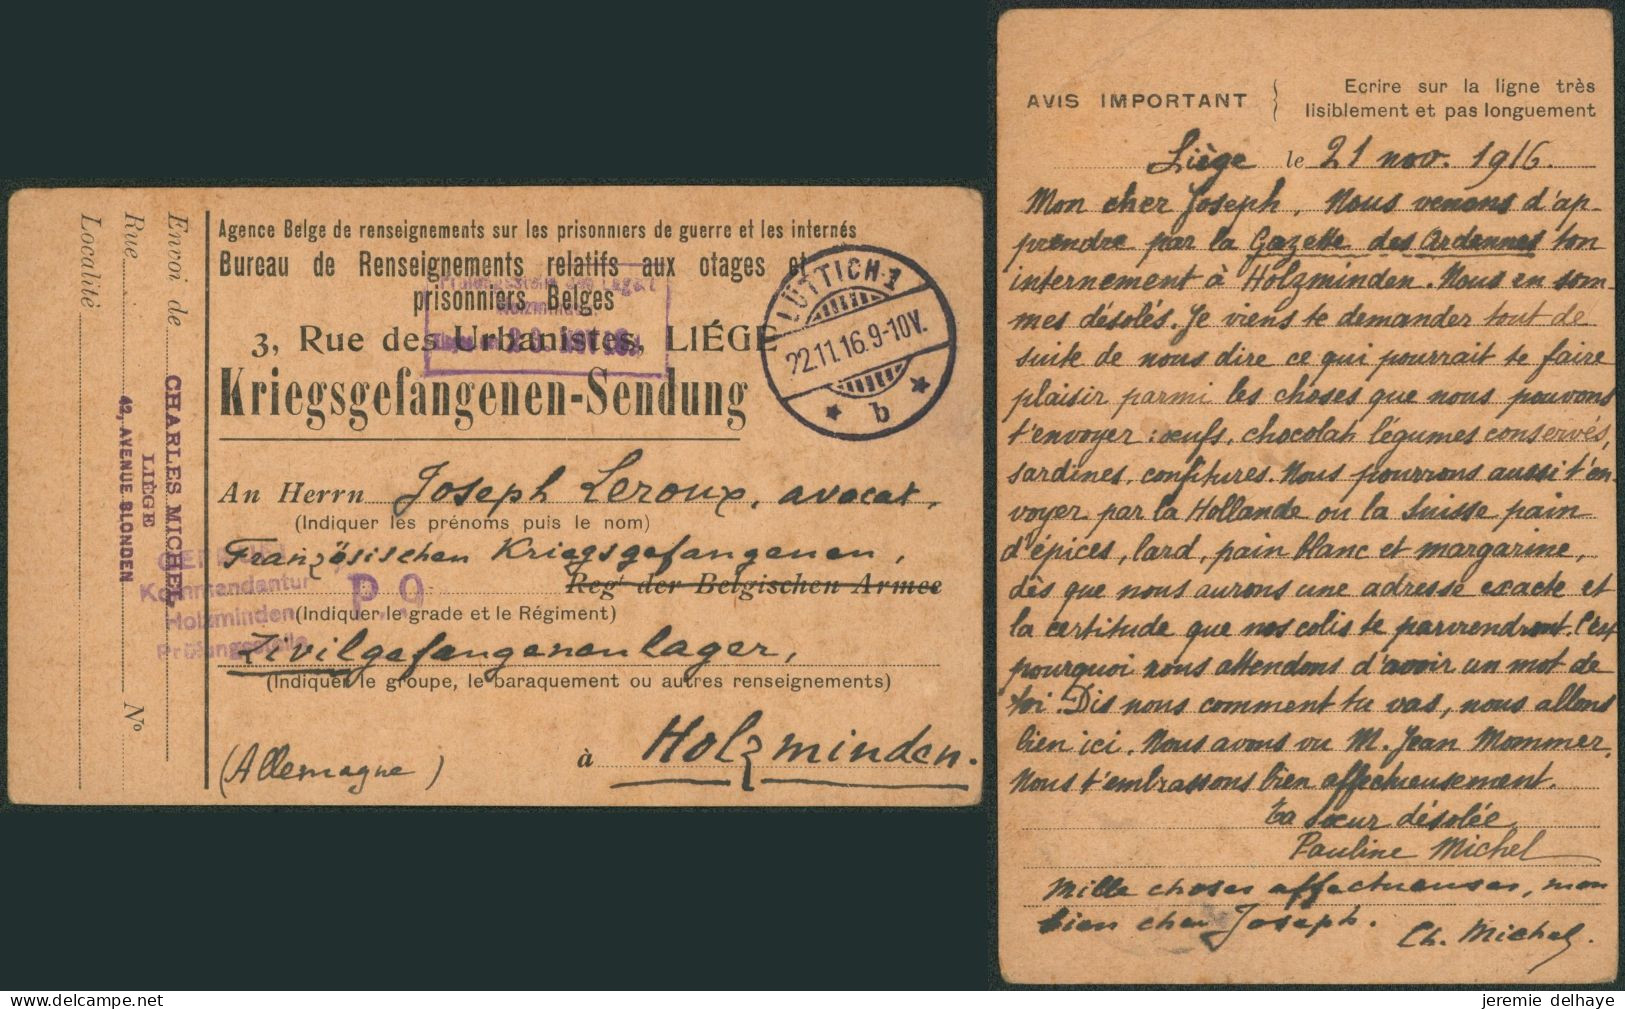 Agence Belge de renseignements sur les prisonniers de guerre et les internés
Bureau de Renseignements relatifs aux otages et
prisonniers Belges
3, Rue des Urbanistes, LIÉGE
Kriegsgefangenen-Sendung
LÜTTICH 1
22.11.16.9-10V.
* b *
Holzminden
Envoi de
Rue
Nº
Localité
CHARLES MICHEL
LIÈGE
42, AVENUE BLONDEN
An Herrn Joseph Leroux, avocat,
(Indiquer les prénoms puis le nom)
Französischen Kriegsgefangenen,
Regt der Belgischen Armee
(Indiquer le grade et le Régiment)
P. 9
Kommandantur
Holzminden
Prüfungsstelle
Zivilgefangenenlager,
(Indiquer le groupe, le baraquement ou autres renseignements)
(Allemagne) à Holzminden.
AVIS IMPORTANT
Ecrire sur la ligne très
lisiblement et pas longuement
Liège le 21 nov. 1916.
Mon cher Joseph, Nous venons d'ap-
prendre par la Gazette des Ardennes ton
internement à Holzminden. Nous en som-
mes désolés. Je viens te demander tout de
suite de nous dire ce qui pourrait te faire
plaisir parmi les choses que nous pouvons
t'envoyer : œufs, chocolat, légumes conservés,
sardines, confitures. Nous pourrons aussi t'en-
voyer par la Hollande ou la Suisse, pain
d'épices, lard, pain blanc et margarine,
dès que nous aurons une adresse exacte et
la certitude que nos colis te parviendront. C'est
pourquoi nous attendons d'avoir un mot de
toi. Dis nous comment tu vas, nous allons
bien ici. Nous avons vu M. Jean Mommer,
Nous t'embrassons bien affectueusement.
Ta sœur désolée,
Pauline Michel
Mille choses affectueuses, mon
bien cher Joseph.
Ch. Michel.
jeremie delhaye